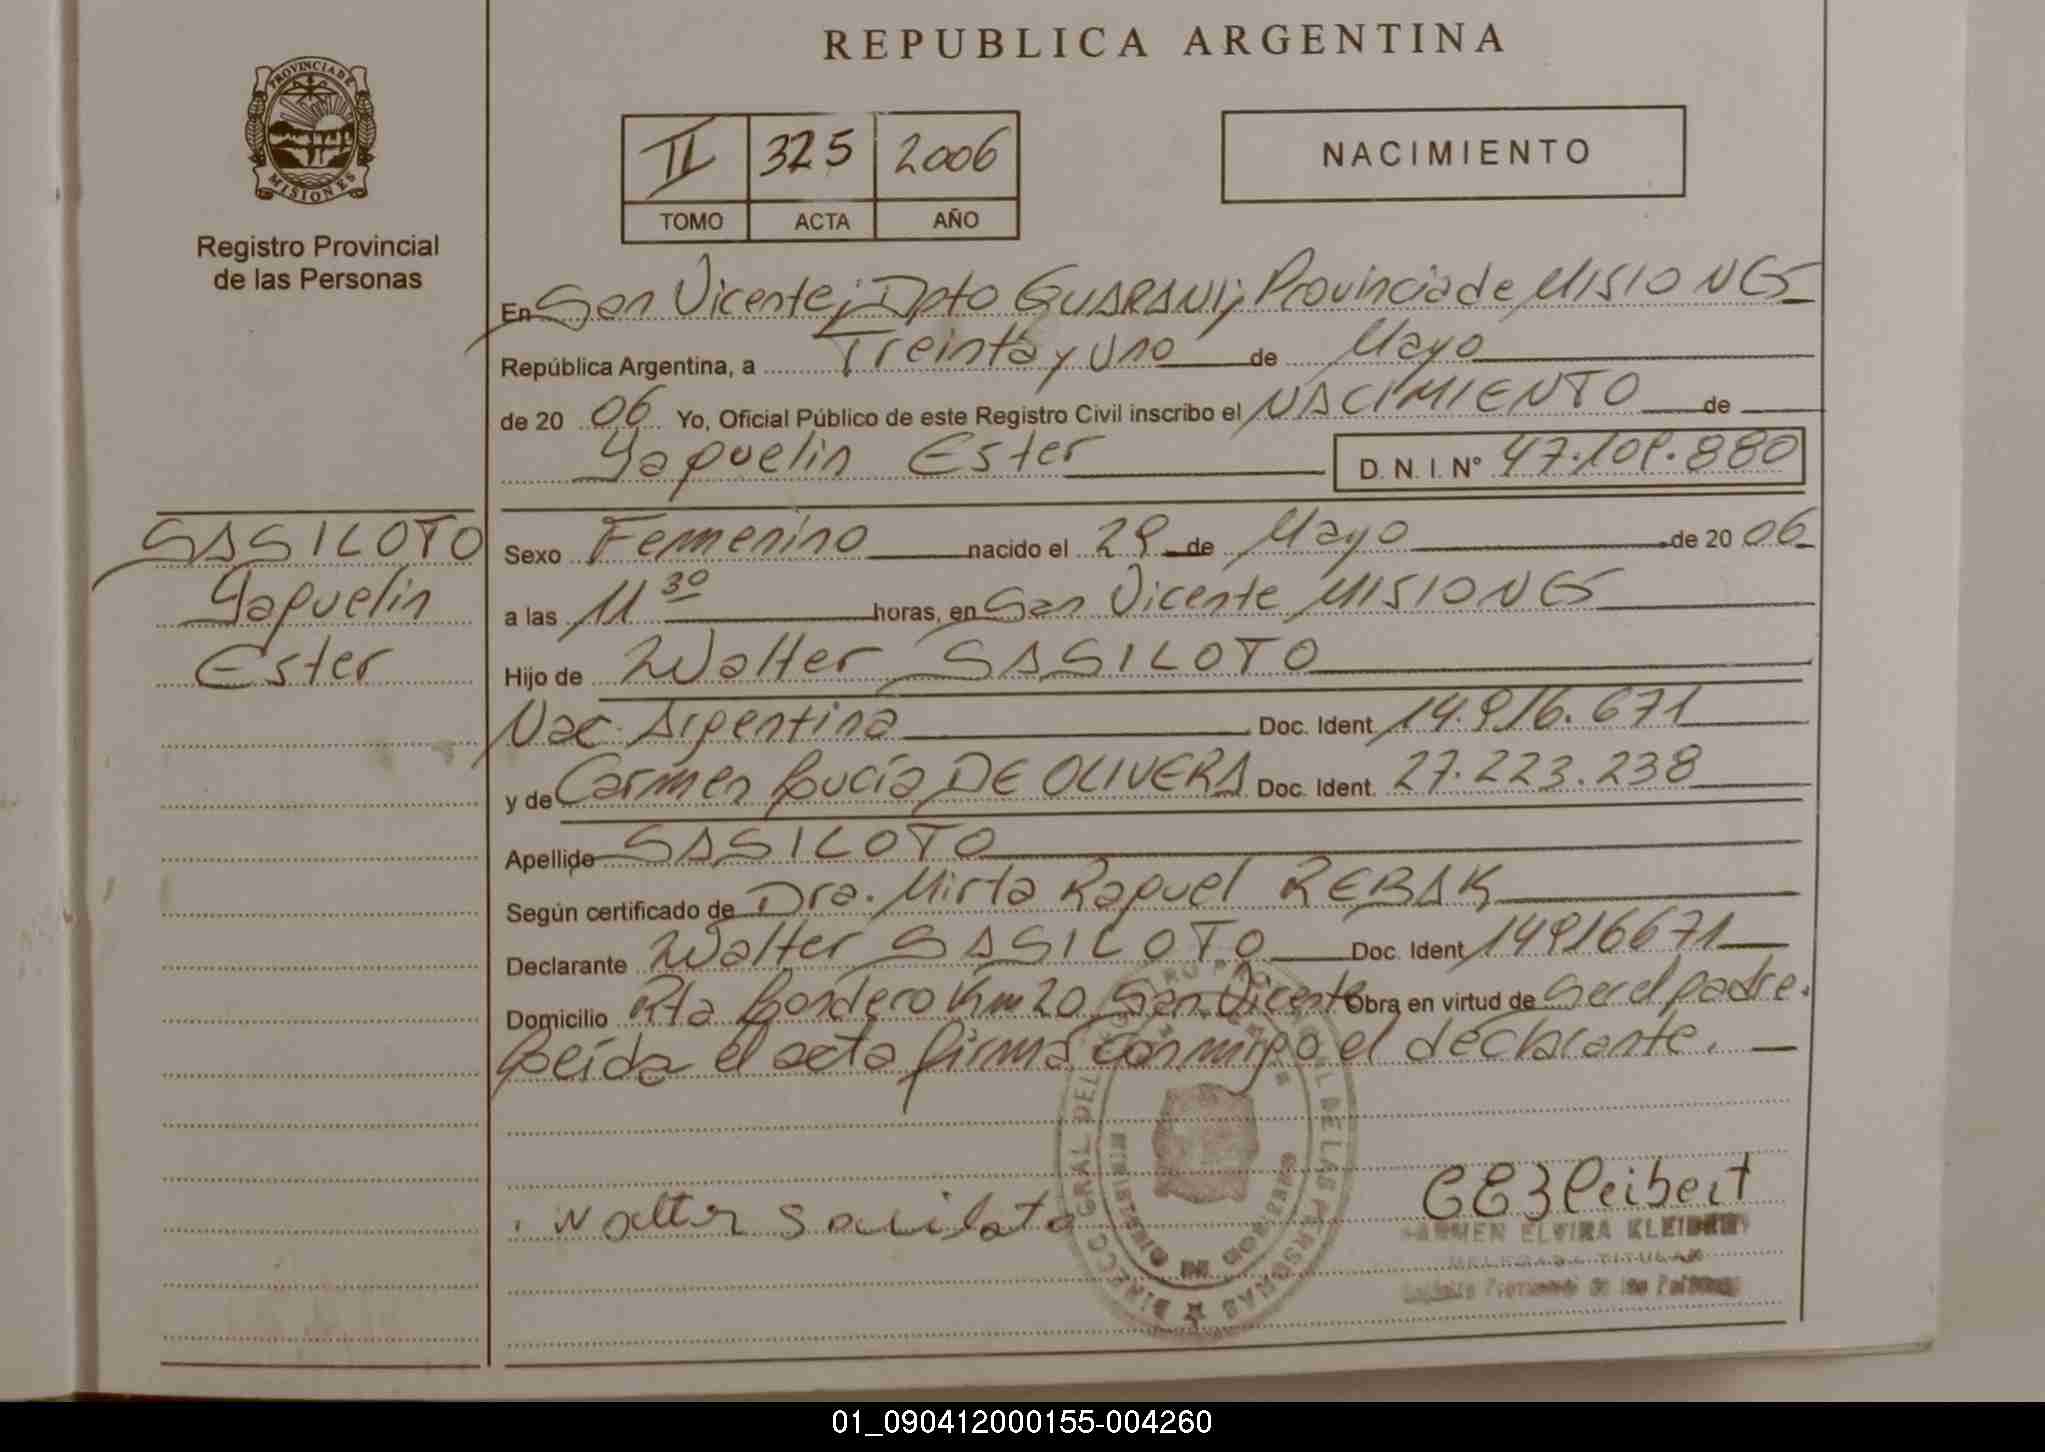 REPUBLICA ARGENTINA
PROVINCIA DE
MISIONES
Registro Provincial
de las Personas
II 325 2006
TOMO ACTA AÑO
NACIMIENTO
En San Vicente; Dpto GUARANI; Provincia de MISIONES
República Argentina, a Treinta y Uno de Mayo
de 20 06 Yo, Oficial Público de este Registro Civil inscribo el NACIMIENTO de
Yaquelin Ester D. N. I. Nº 47.109.880
SASILOTO
Yaquelin
Ester
Sexo Femenino nacido el 29 de Mayo de 20 06
a las 11 30 horas, en San Vicente MISIONES
Hijo de Walter SASILOTO
Nac. Argentina Doc. Ident. 14.916.671
y de Carmen Lucía DE OLIVERA Doc. Ident. 27.223.238
Apellido SASILOTO
Según certificado de Dra. Mirta Raquel REBAK
Declarante Walter SASILOTO Doc. Ident. 14916671
Domicilio Rta Bordero Km 20 San Vicente Obra en virtud de Ser el padre.
Leída el acta firma conmigo el declarante.
Walter
CARMEN ELVIRA KLEIBERT
DELEGADA TITULAR
Registro Provincial de las Personas
DIRECC GRAL DEL REGISTRO PROVINCIAL DE LAS PERSONAS
MINISTERIO DE GOBIERNO
01_090412000155-004260